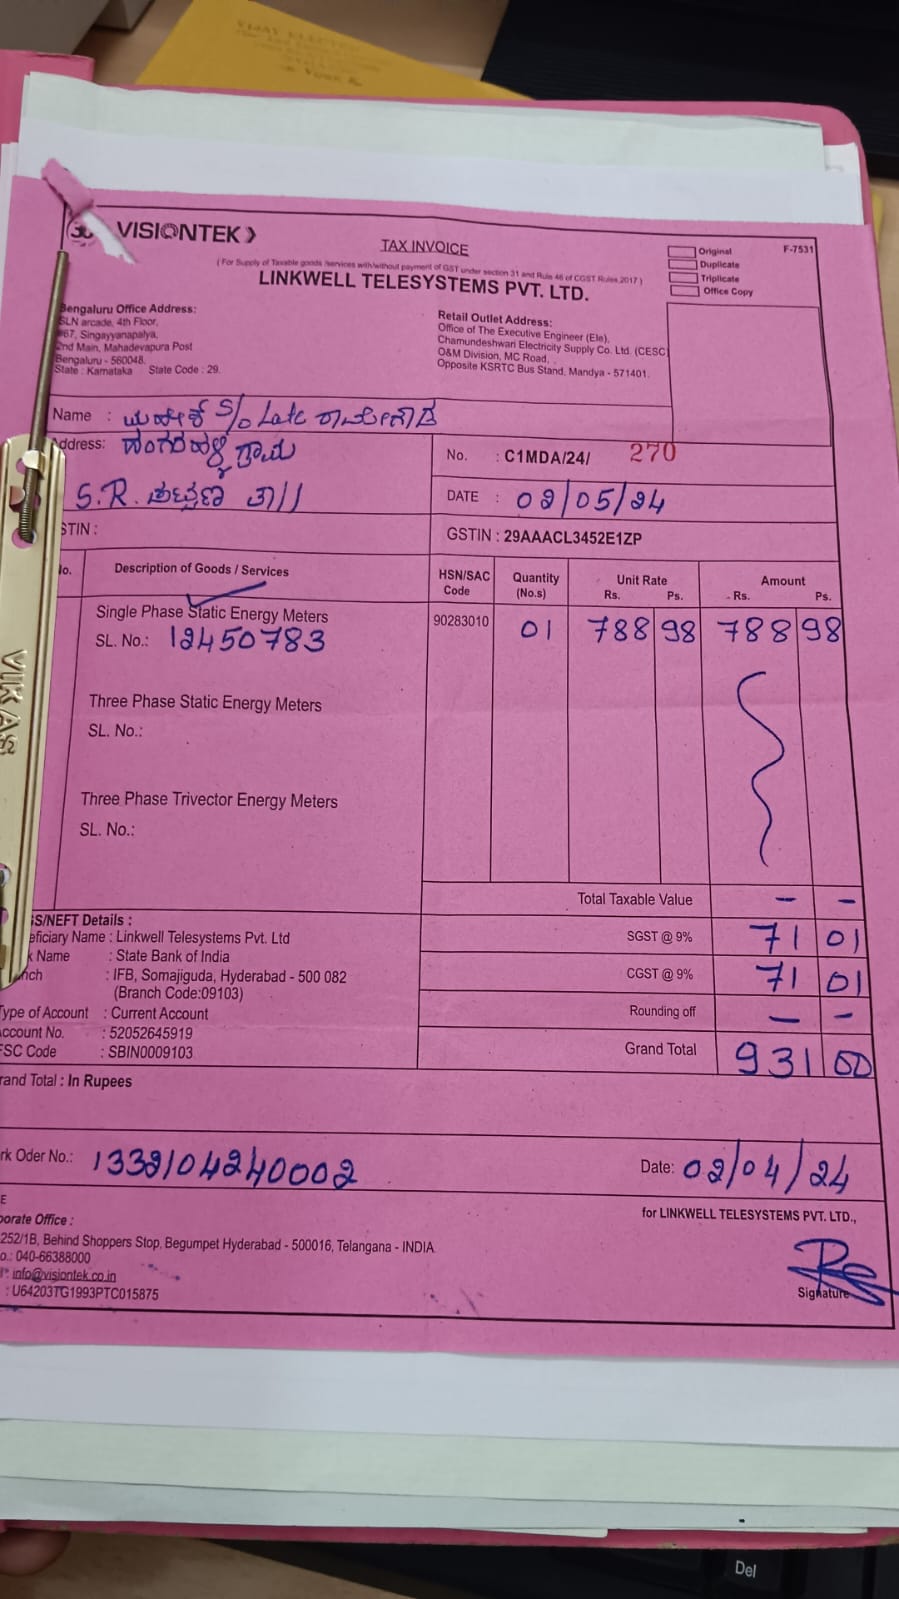 VISIONTEK
TAX INVOICE
( For Supply of Taxable goods /services with/without payment of GST under section 31 and Rule 46 of CGST Rules,2017 )
LINKWELL TELESYSTEMS PVT. LTD.
Original
Duplicate
Triplicate
Office Copy
F-7531
Bengaluru Office Address:
SLN arcade, 4th Floor,
#67, Singayyanapalya,
2nd Main, Mahadevapura Post
Bengaluru - 560048.
State : Karnataka State Code : 29.
Retail Outlet Address:
Office of The Executive Engineer (Ele),
Chamundeshwari Electricity Supply Co. Ltd. (CESC)
O&M Division, MC Road,
Opposite KSRTC Bus Stand, Mandya - 571401.
Name : ಮಹೇಶ್ S/o Late
Address: ಗ್ರಾಮ
S.R. ಪಟ್ಟಣ ತಾ//
No. : C1MDA/24/ 270
DATE : 02/05/24
STIN :
GSTIN : 29AAACL3452E1ZP
No. Description of Goods / Services HSN/SAC Code Quantity (No.s) Unit Rate Rs. Ps. Amount Rs. Ps.
Single Phase Static Energy Meters 90283010 01 788 98 788 98
SL. No.: 12450783
Three Phase Static Energy Meters
SL. No.:
Three Phase Trivector Energy Meters
SL. No.:
Total Taxable Value — —
SGST @ 9% 71 01
CGST @ 9% 71 01
Rounding off — —
Grand Total 931 00
GS/NEFT Details :
eficiary Name : Linkwell Telesystems Pvt. Ltd
k Name : State Bank of India
nch : IFB, Somajiguda, Hyderabad - 500 082
(Branch Code:09103)
Type of Account : Current Account
Account No. : 52052645919
FSC Code : SBIN0009103
rand Total : In Rupees
rk Oder No.: 1332104240002
Date: 02/04/24
for LINKWELL TELESYSTEMS PVT. LTD.,
porate Office :
252/1B, Behind Shoppers Stop, Begumpet Hyderabad - 500016, Telangana - INDIA
o.: 040-66388000
info@visiontek.co.in
: U64203TG1993PTC015875
Signature
VIKAS
Del